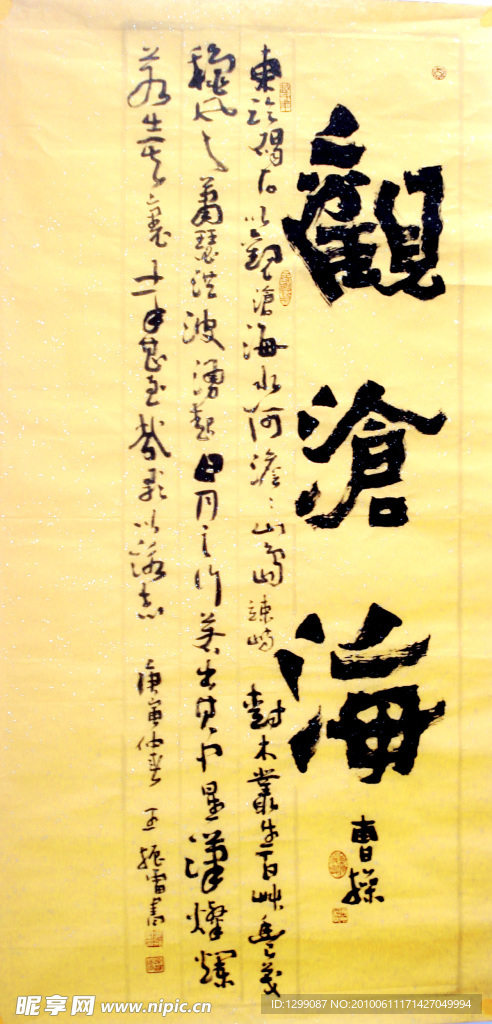 觀滄海
曹操
東臨碣石以觀滄海水何澹〻山島竦峙 樹木叢生百艸豐茂
穐風蕭瑟洪波湧起日月之行若出其中星漢燦爛
若出其裏幸甚至哉歌以詠志 庚寅仲春 王振雷書
昵享网 www.nipic.cn
ID:1299087 NO:20100611171427049994